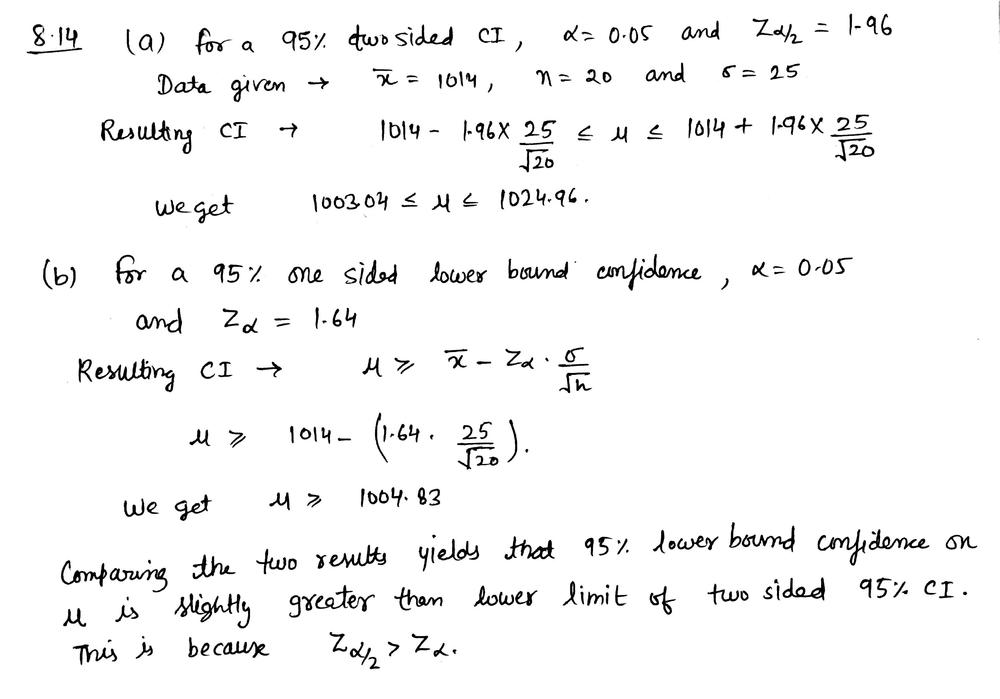 8.14 (a) for a 95% two sided CI, α = 0.05 and Zα/2 = 1.96
Data given → x̅ = 1014, n = 20 and σ = 25
Resulting CI → 1014 - 1.96 × 25/√20 ≤ μ ≤ 1014 + 1.96 × 25/√20
We get 1003.04 ≤ μ ≤ 1024.96.
(b) for a 95% one sided lower bound confidence, α = 0.05
and Zα = 1.64
Resulting CI → μ ≥ x̅ - Zα · σ/√n
μ ≥ 1014 - (1.64 · 25/√20).
We get μ ≥ 1004.83
Comparing the two results yields that 95% lower bound confidence on
μ is slightly greater than lower limit of two sided 95% CI.
This is because Zα/2 > Zα.